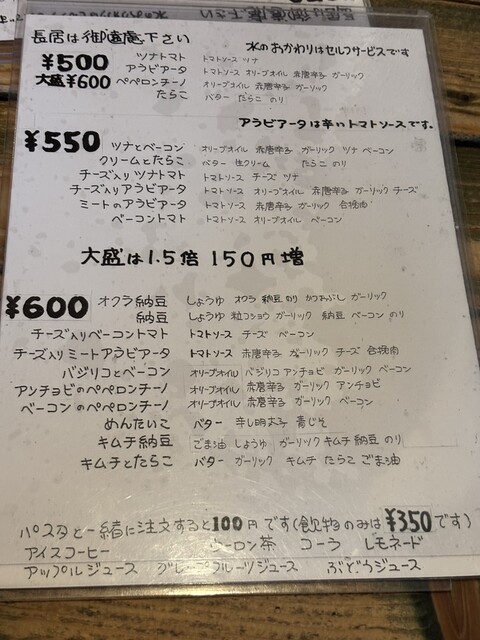 長居は御遠慮下さい
水のおかわりはセルフサービスです
¥500 ツナトマト トマトソース ツナ
アラビアータ トマトソース オリーブオイル 赤唐辛子 ガーリック
大盛¥600 ペペロンチーノ オリーブオイル 赤唐辛子 ガーリック
たらこ バター たらこ のり
アラビアータは辛いトマトソースです。
¥550 ツナとベーコン オリーブオイル 赤唐辛子 ガーリック ツナ ベーコン
クリームとたらこ バター 生クリーム たらこ のり
チーズ入りツナトマト トマトソース チーズ ツナ
チーズ入りアラビアータ トマトソース オリーブオイル 赤唐辛子 ガーリック チーズ
ミートのアラビアータ トマトソース オリーブオイル 赤唐辛子 ガーリック 合挽肉
ベーコントマト トマトソース オリーブオイル ベーコン
大盛は1.5倍 150円増
¥600 オクラ納豆 しょうゆ オクラ 納豆 のり かつおぶし ガーリック
納豆 しょうゆ 粒コショウ ガーリック 納豆 ベーコン のり
チーズ入りベーコントマト トマトソース チーズ ベーコン
チーズ入りミートアラビアータ トマトソース 赤唐辛子 ガーリック チーズ 合挽肉
バジリコとベーコン オリーブオイル バジリコ アンチョビ ガーリック ベーコン
アンチョビのペペロンチーノ オリーブオイル 赤唐辛子 ガーリック アンチョビ
ベーコンのペペロンチーノ オリーブオイル 赤唐辛子 ガーリック ベーコン
めんたいこ バター 辛し明太子 青じそ
キムチ納豆 ごま油 しょうゆ ガーリック キムチ 納豆 のり
キムチとたらこ バター ガーリック キムチ たらこ ごま油
パスタと一緒に注文すると100円です(飲物のみは¥350です)
アイスコーヒー ウーロン茶 コーラ レモネード
アップルジュース グレープフルーツジュース ぶどうジュース